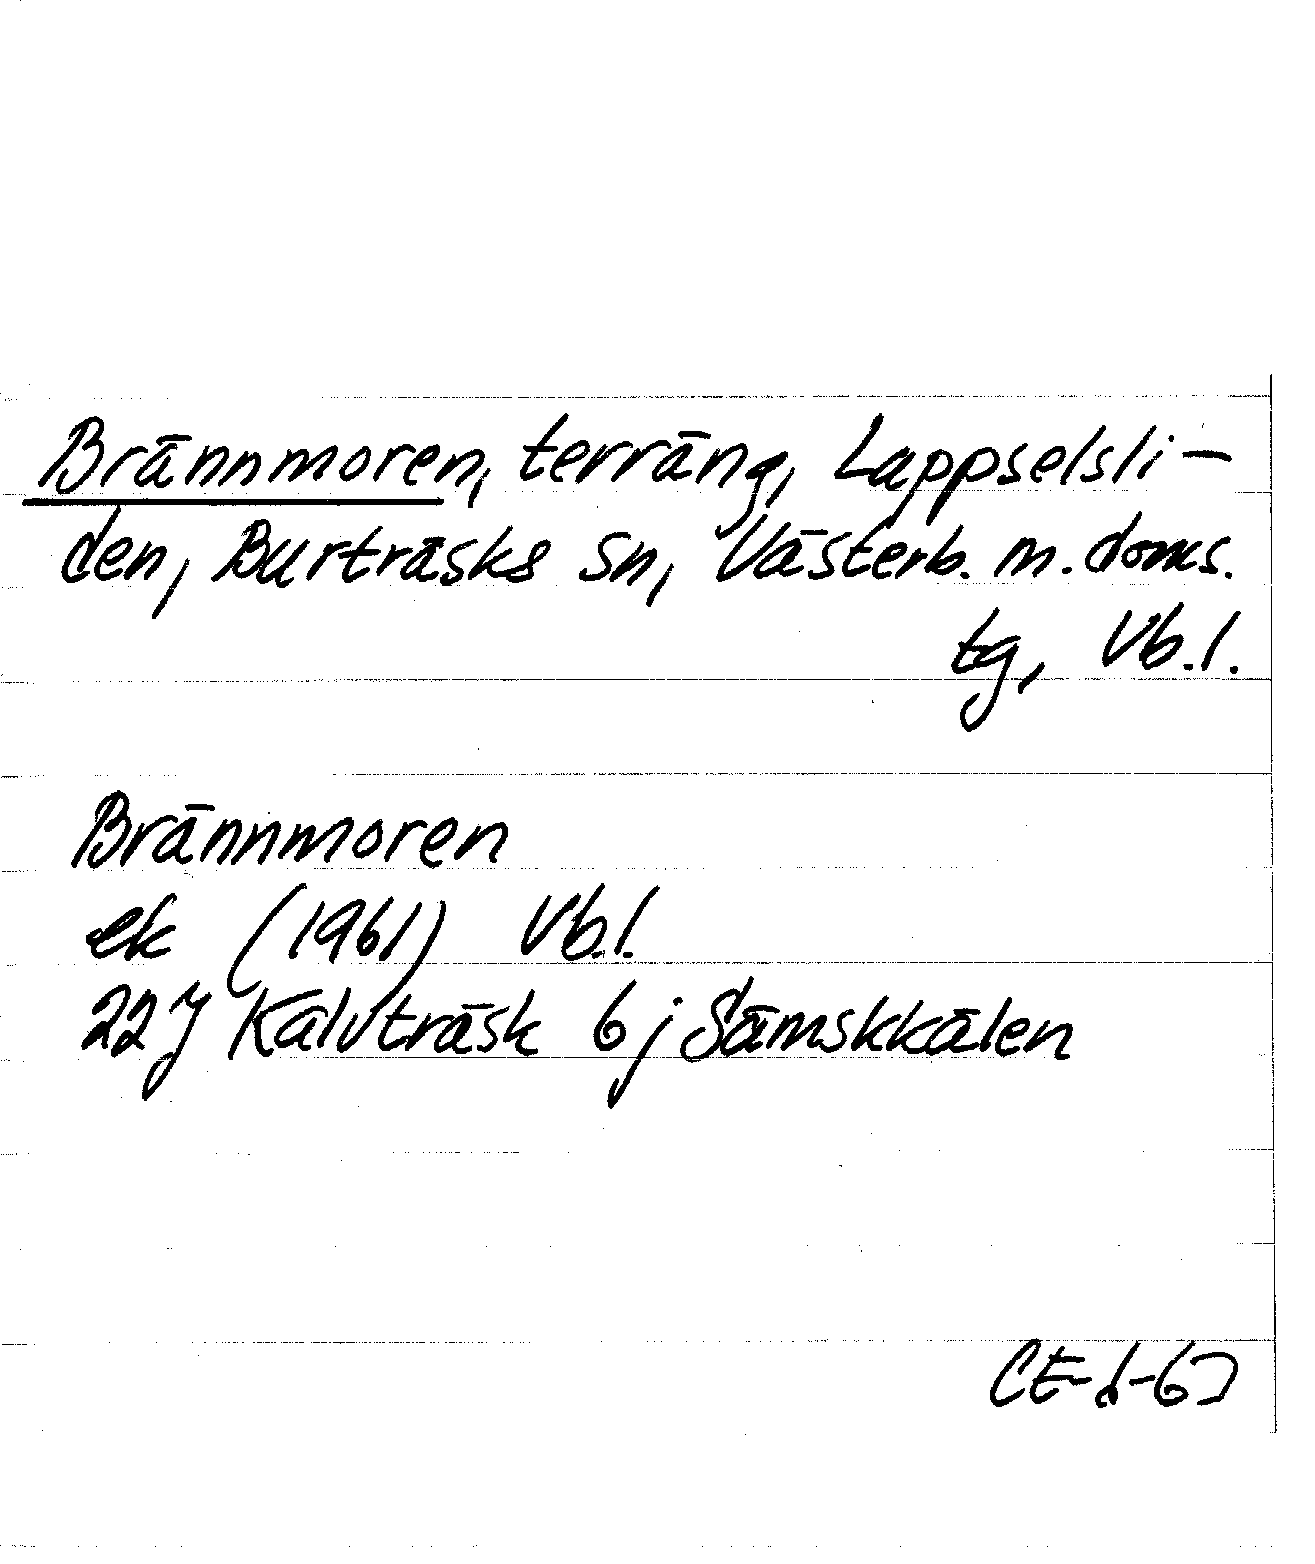 Brännmoren, terräng, Lappselsli-
den, Burträsks sn, Västerb. m. doms.
tg, Vb.l.
Brännmoren
ek (1961) Vb.l.
22J Kalvträsk 6j Sämskkålen